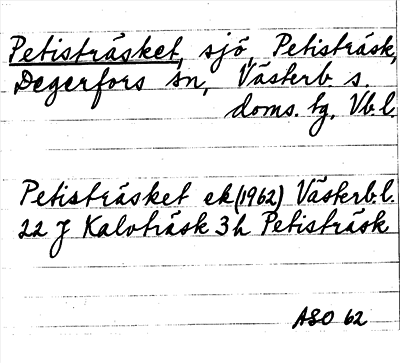 Petisträsket, sjö, Petisträsk,
Degerfors sn, Västerb. s.
doms. tg, Vb.l.
Petisträsket ek (1962) Västerb.l.
22 J Kalvträsk 3h Petisträsk
ASO 62